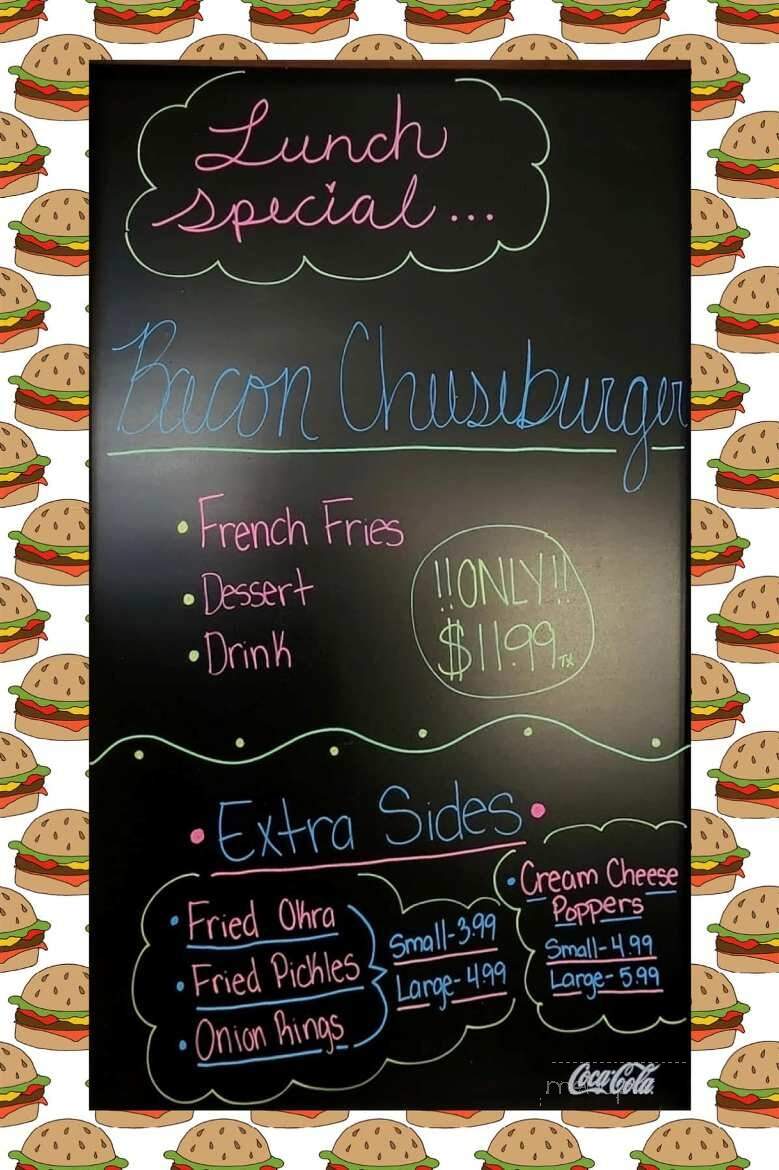 Lunch
special...
Bacon Cheeseburger
• French Fries
• Dessert
• Drink
!!ONLY!!
$11.99 TX
• Extra Sides •
• Fried Okra
• Fried Pickles
• Onion Rings
Small-3.99
Large-4.99
• Cream Cheese
Poppers
Small-4.99
Large-5.99
Coca-Cola